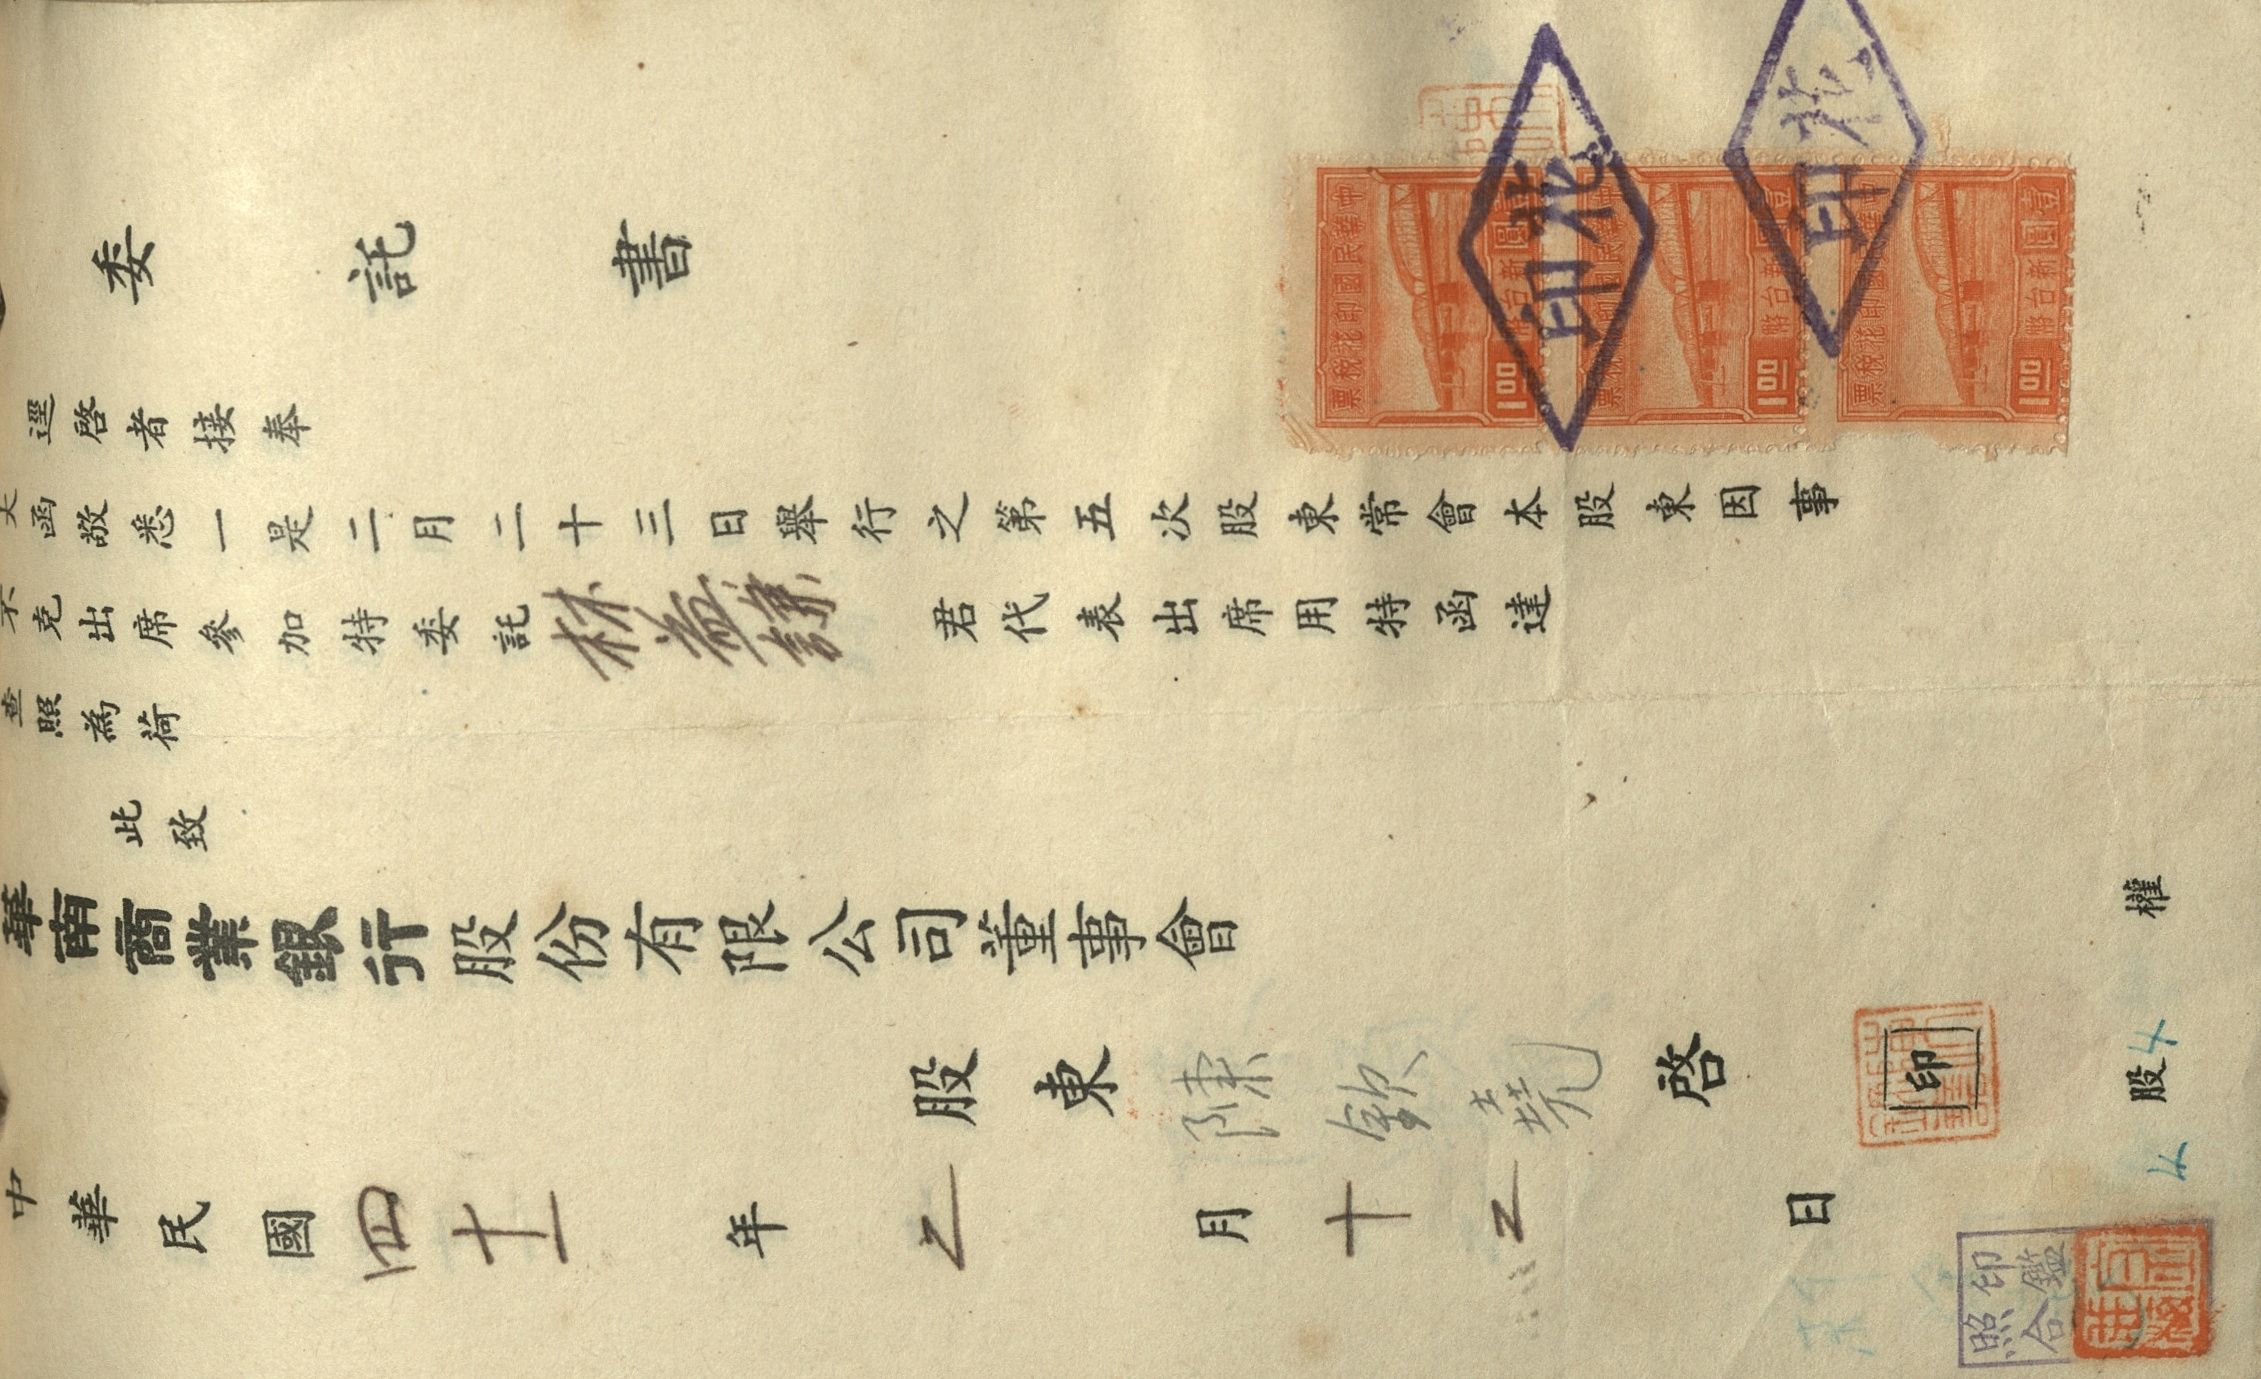 委託書
中華民國印花稅票
壹圓
新台幣
1.00
中華民國印花稅票
圓
新台幣
1.00
中華民國印花稅票
壹圓
新台幣
1.00
印花
印花
逕啓者接奉
大函敬悉一是二月二十三日舉行之第五次股東常會本股東因事
不克出席參加特委託林益謙君代表出席用特函達
查照為荷
此致
華南商業銀行股份有限公司董事會
股東陳欽堯啓 印
中華民國四十一年二月十二日
股 4
權
印鑑
照合